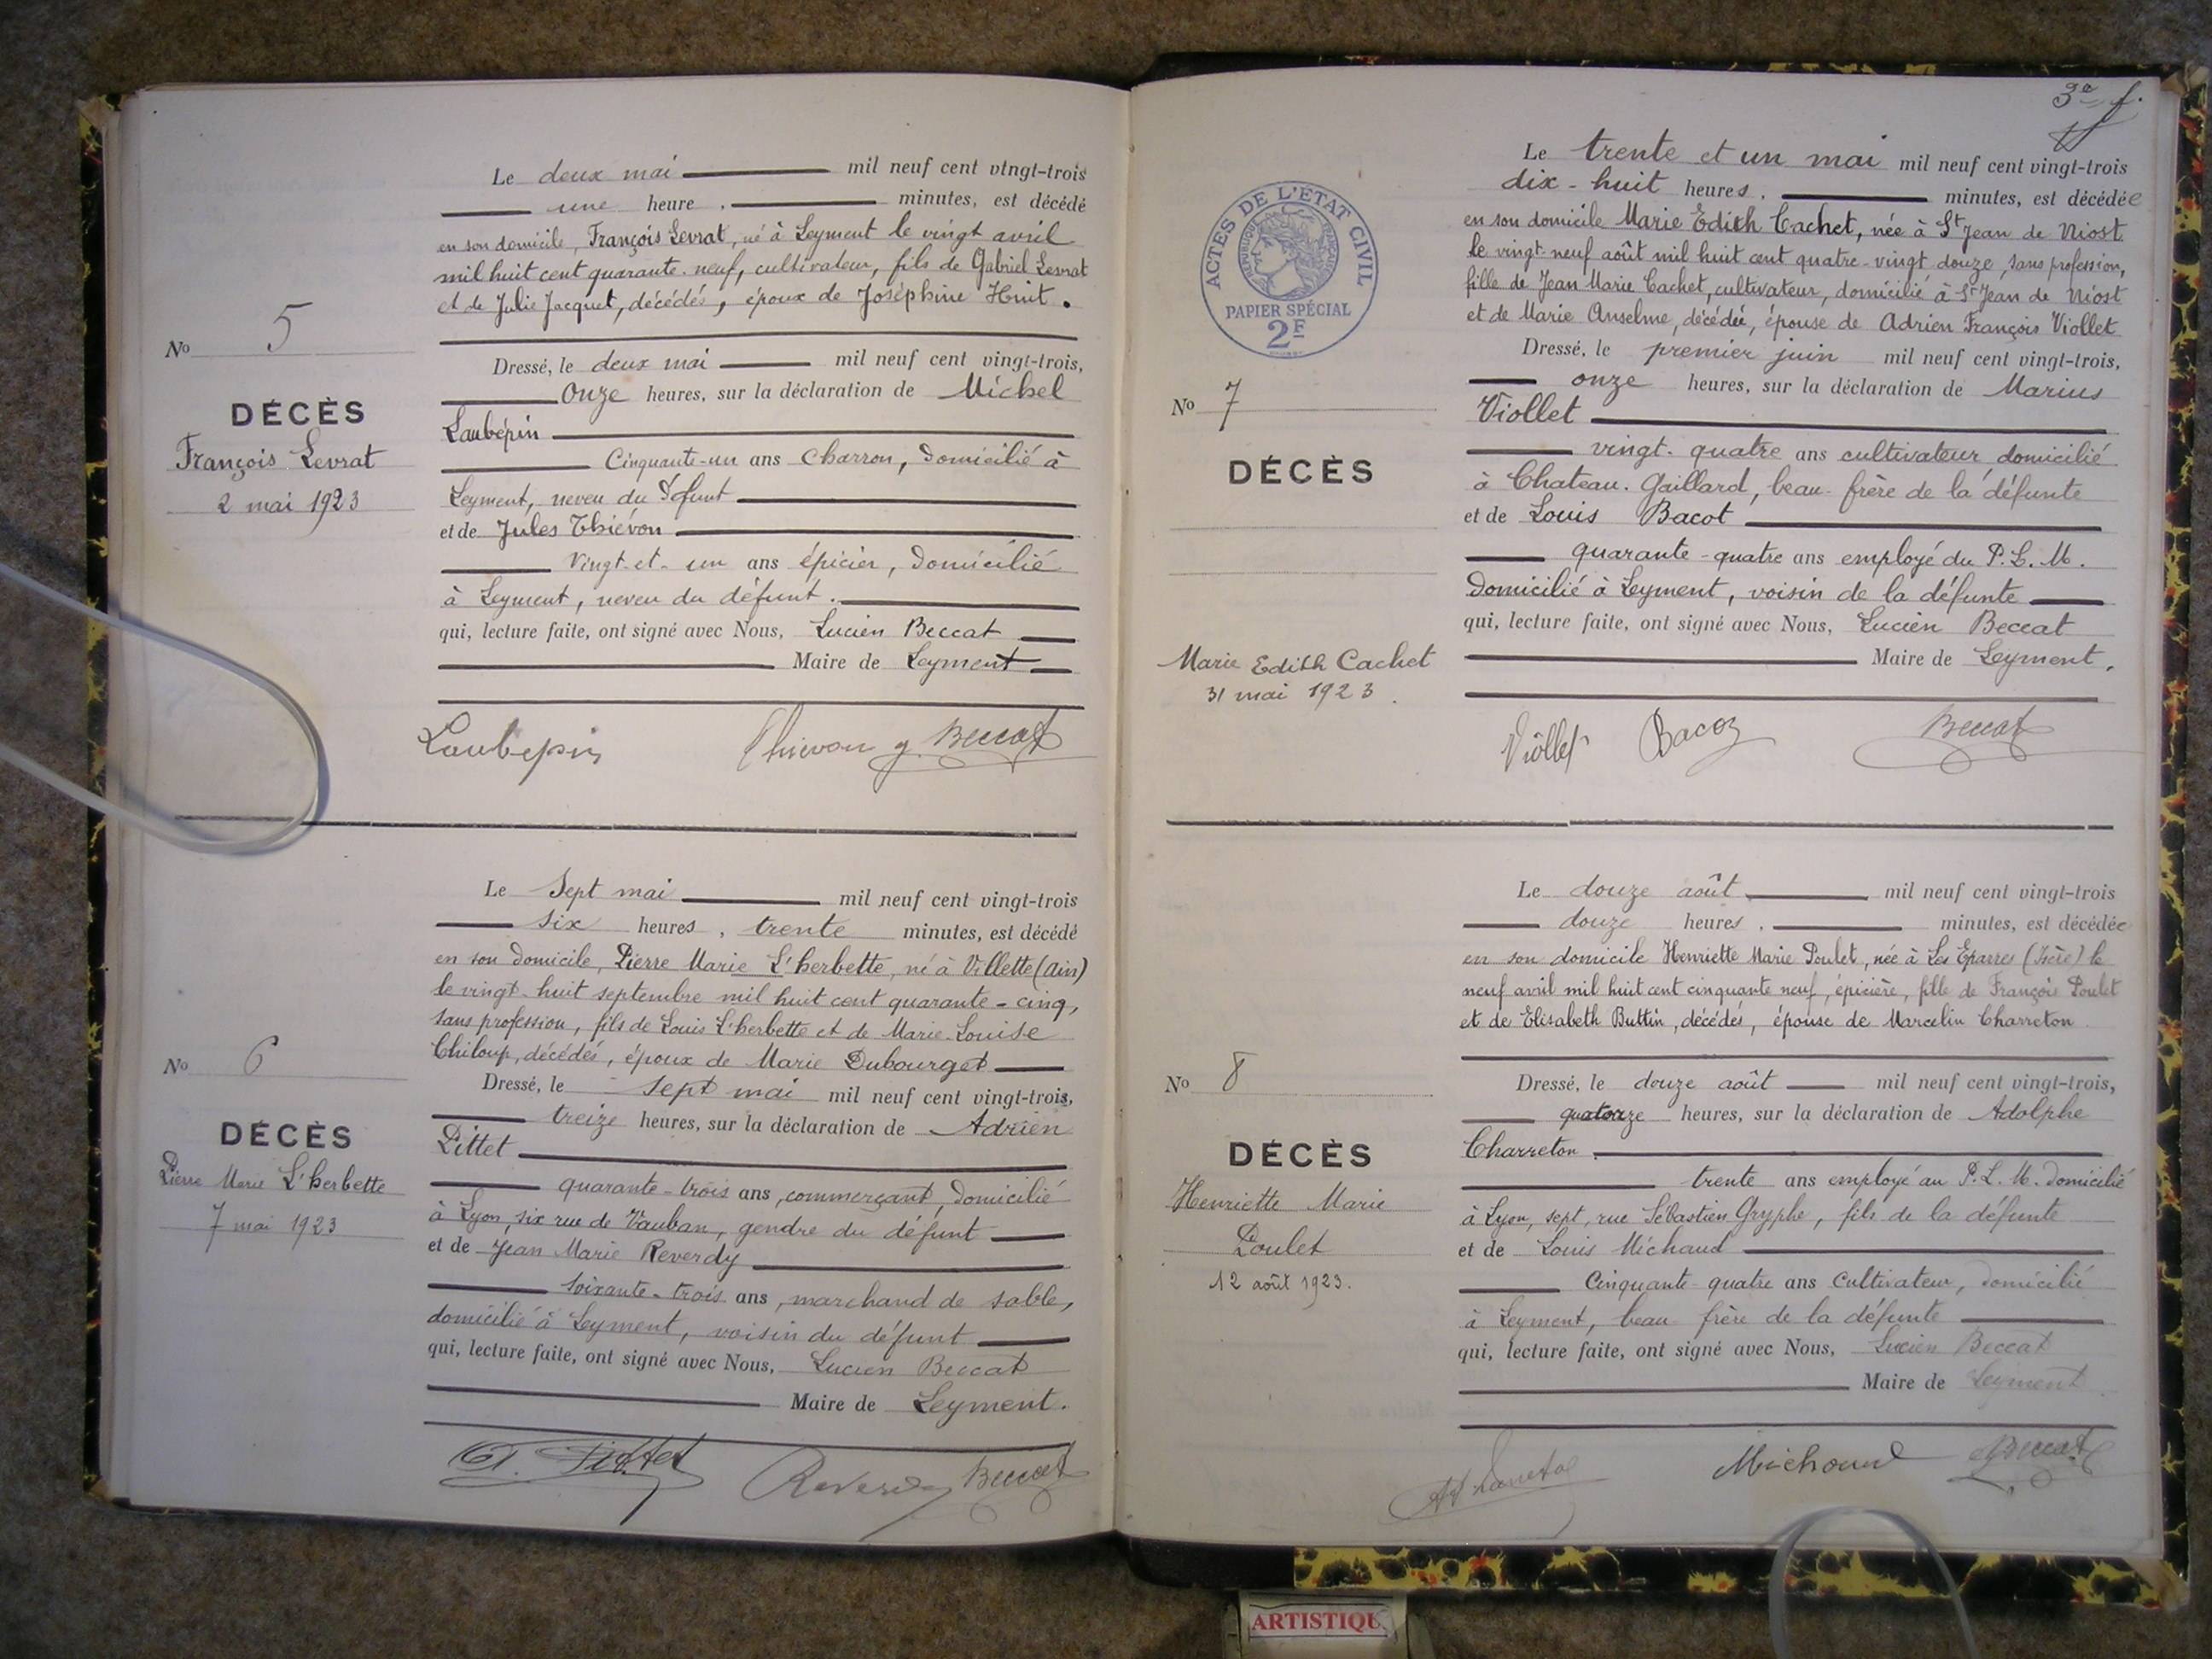 Le deux mai mil neuf cent vingt-trois
une heure , minutes, est décédé
en son domicile, François Levrat, né à Leyment le vingt avril
mil huit cent quarante-neuf, cultivateur, fils de Gabriel Levrat
et de Julie Jacquet, décédés, époux de Joséphine Huit.
No 5
DÉCÈS
François Levrat
2 mai 1923
Dressé, le deux mai mil neuf cent vingt-trois,
Onze heures, sur la déclaration de Michel
Laubépin
Cinquante-un ans Charron, domicilié à
Leyment, neveu du défunt
et de Jules Thiévon
Vingt-et-un ans épicier, domicilié
à Leyment, neveu du défunt.
qui, lecture faite, ont signé avec Nous, Lucien Beccat
Maire de Leyment
Laubepin Thievon J. Beccat
Le Sept mai mil neuf cent vingt-trois
six heures , trente minutes, est décédé
en son domicile, Pierre Marie L'herbette, né à Villette (Ain)
le vingt-huit septembre mil huit cent quarante-cinq,
sans profession, fils de Louis L'herbette et de Marie-Louise
Chiloup, décédés, époux de Marie Dubourget
No 6
DÉCÈS
Pierre Marie L'herbette
7 mai 1923
Dressé, le sept mai mil neuf cent vingt-trois,
treize heures, sur la déclaration de Adrien
Pittet
quarante-trois ans, commerçant, domicilié
à Lyon, six rue de Vauban, gendre du défunt
et de Jean Marie Reverdy
soixante-trois ans, marchand de sable,
domicilié à Leyment, voisin du défunt
qui, lecture faite, ont signé avec Nous, Lucien Beccat
Maire de Leyment.
A. Pittet Reverdy Beccat
3e f.
ACTES DE L'ETAT CIVIL
REPUBLIQUE FRANÇAISE
PAPIER SPÉCIAL
2F
Le trente et un mai mil neuf cent vingt-trois
dix-huit heures . minutes, est décédée
en son domicile Marie Edith Cachet, née à St Jean de Niost
le vingt-neuf août mil huit cent quatre-vingt douze, sans profession,
fille de Jean Marie Cachet, cultivateur, domicilié à St Jean de Niost
et de Marie Anselme, décédée, épouse de Adrien François Viollet
No 7
DÉCÈS
Marie Edith Cachet
31 mai 1923.
Dressé, le premier juin mil neuf cent vingt-trois,
onze heures, sur la déclaration de Marius
Viollet
vingt-quatre ans cultivateur domicilié
à Chateau-Gaillard, beau-frère de la défunte
et de Louis Bacot
quarante-quatre ans employé du P. L. M.
domicilié à Leyment, voisin de la défunte
qui, lecture faite, ont signé avec Nous, Lucien Beccat
Maire de Leyment.
Viollet Bacot Beccat
Le douze août mil neuf cent vingt-trois
douze heures . minutes, est décédée
en son domicile Henriette Marie Poulet, née à Les Eparres (Isère) le
neuf avril mil huit cent cinquante neuf, épicière, fille de François Poulet
et de Elisabeth Buttin, décédés, épouse de Marcelin Charreton
No 8
DÉCÈS
Henriette Marie
Poulet
12 août 1923.
Dressé, le douze août mil neuf cent vingt-trois,
quatorze heures, sur la déclaration de Adolphe
Charreton.
trente ans employé au P. L. M. domicilié
à Lyon, sept, rue Sébastien Gryphe, fils de la défunte
et de Louis Michaud
Cinquante-quatre ans Cultivateur, domicilié
à Leyment, beau frère de la défunte
qui, lecture faite, ont signé avec Nous, Lucien Beccat
Maire de Leyment.
Michoud Beccat
ARTISTIQU